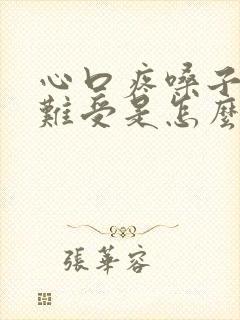 心口疼嗓子
難受是怎麼
張華容